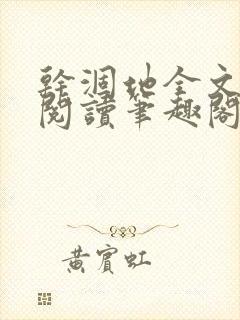 幹涸地全文
閱讀筆趣閣
黃賓虹